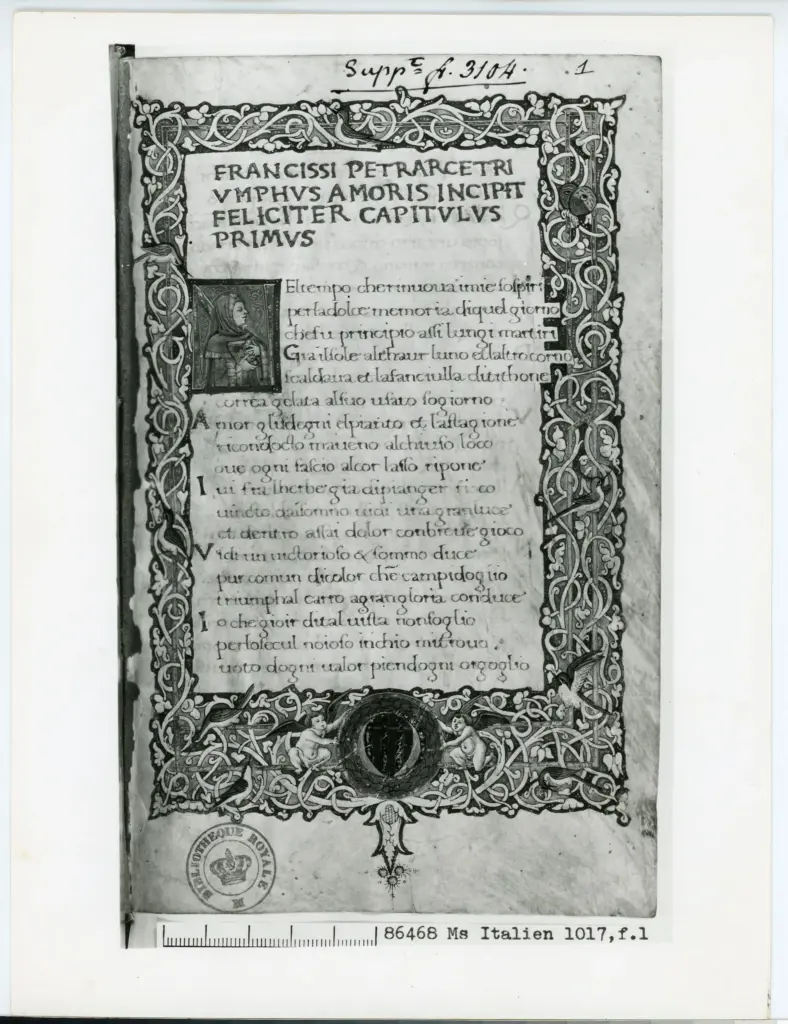 Suppt. fr. 3104. 1
FRANCISSI PETRARCE TRI
VMPHVS AMORIS INCIPIT
FELICITER CAPITVLVS
PRIMVS
El tempo che rinuoua imie sospiri
perladolce memoria diquel giorno
che fu principio assi lungi martiri
Gia ilsole althaur luno et laltro corno
scaldaua et lafanciulla dithone
correa gelata alsuo usato sogiorno
Amor glisdegni elpianto et lastagione
ricondocto maueno alchiuso loco
oue ogni fascio alcor lasso ripone
Iui fra lherbe gia dipianger fioco
uincto dalsomno uidi una granluce
et dentro assai dolor conbreue gioco
Vidi un uictorioso & sommo duce
pur comun dicolor che campidoglio
triumphal carro agrangloria conduce
Io che gioir dital uista nonsoglio
perlosecul noioso inchio mitrouo
uoto dogni ualor piendogni orgoglio
BIBLIOTHEQUE ROYALE
86468 Ms Italien 1017,f.1